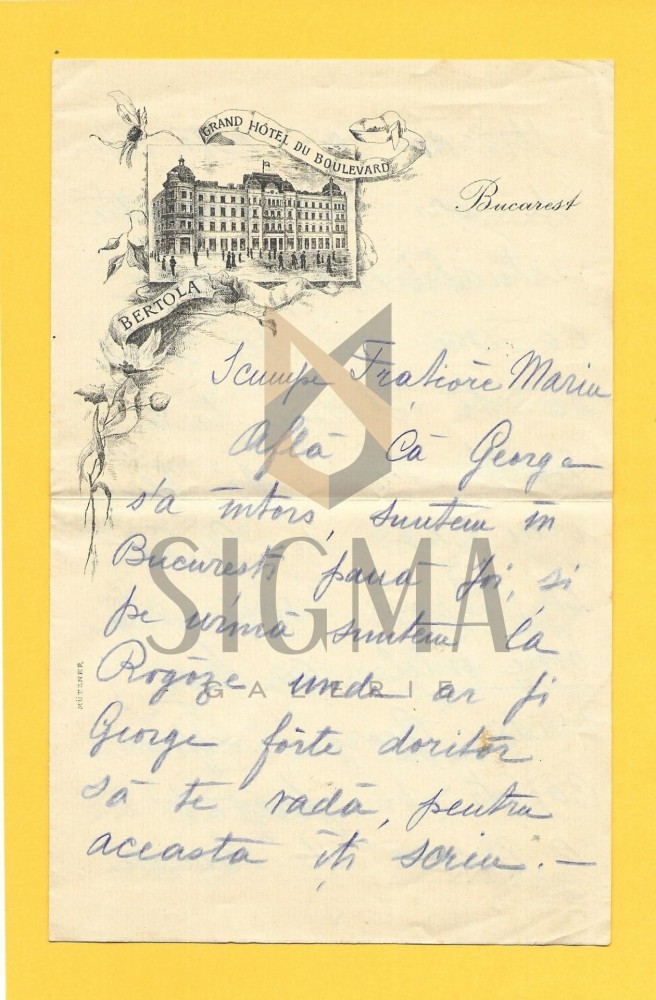 GRAND HÔTEL DU BOULEVARD
Bucarest
BERTOLA
Scumpe Frațiore Mariu
Află că George
s'a întors, suntem în
București până Joi, și
pe urmă suntem la
Rogoze unde ar fi
George fórte doritór
să te vadă, pentru
aceasta îți scriu. —
MÜTZNER
SIGMA
GALERIE